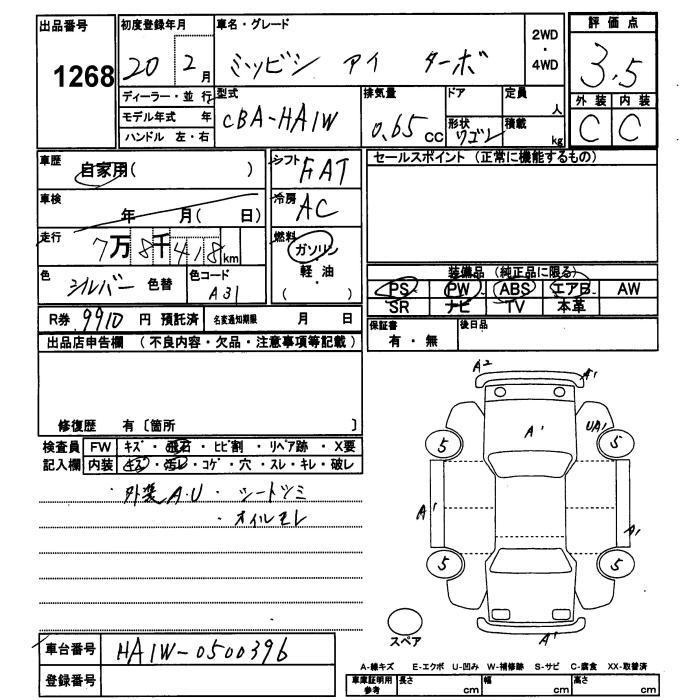 出品番号 初度登録年月 車名・グレード 2WD ・ 4WD 評価点
1268 20 2月 ミツビシ アイ ターボ 3,5
ディーラー・並行 型式 排気量 ドア 定員 人 外装 内装
モデル年式 年 CBA-HA1W 0.65cc 形状 ワゴン 積載 kg C C
ハンドル 左・右
車歴 自家用( ) シフト FAT セールスポイント (正常に機能するもの)
車検 年 月( 日) 冷房 AC
走行 7万8千418km 燃料 ガソリン
軽・油
( )
色 シルバー 色替 色コード A31 装備品 (純正品に限る)
PS PW ABS エアB AW
SR ナビ TV 本革
R券 9910 円 預託済 名変通知期限 月 日 保証書 有・無 後日品
出品店申告欄 (不良内容・欠品・注意事項等記載)
修復歴 有〔箇所 〕
検査員 FW キズ・飛石・ヒビ割・リペア跡・X要
記入欄 内装 キズ・汚レ・コゲ・穴・スレ・キレ・破レ
・外装A.U ・シートツミ
・オイルモレ
A2 A1
A1 UA1
5 5
A1 A1
5 5
A1
スペア
車台番号 HA1W-0500396
登録番号
A-線キズ E-エクボ U-凹み W-補修跡 S-サビ C-腐食 XX-取替済
車庫証明用参考 長さ cm 幅 cm 高さ cm